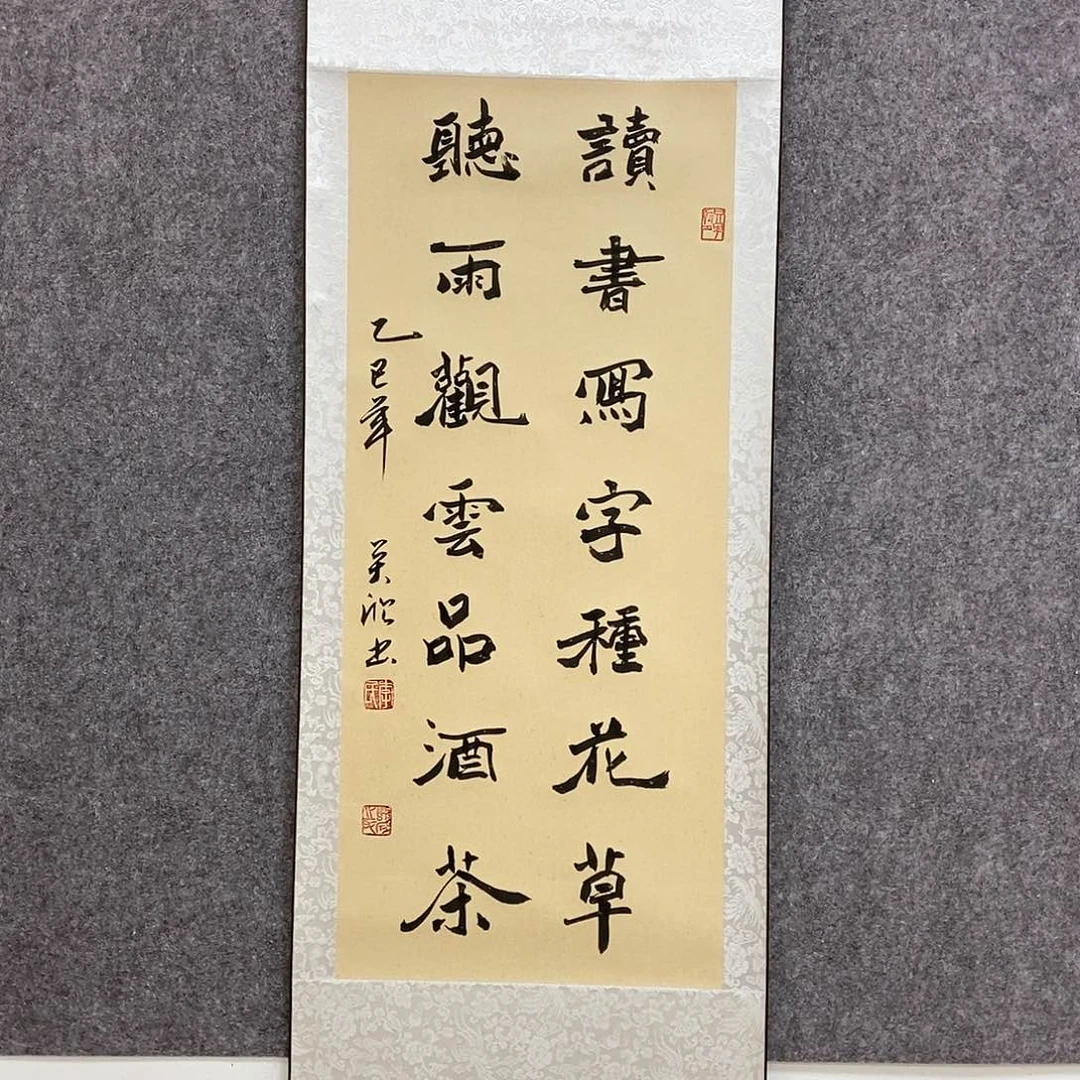 讀書寫字種花草
聽雨觀雲品酒茶
乙巳年
吴欣书